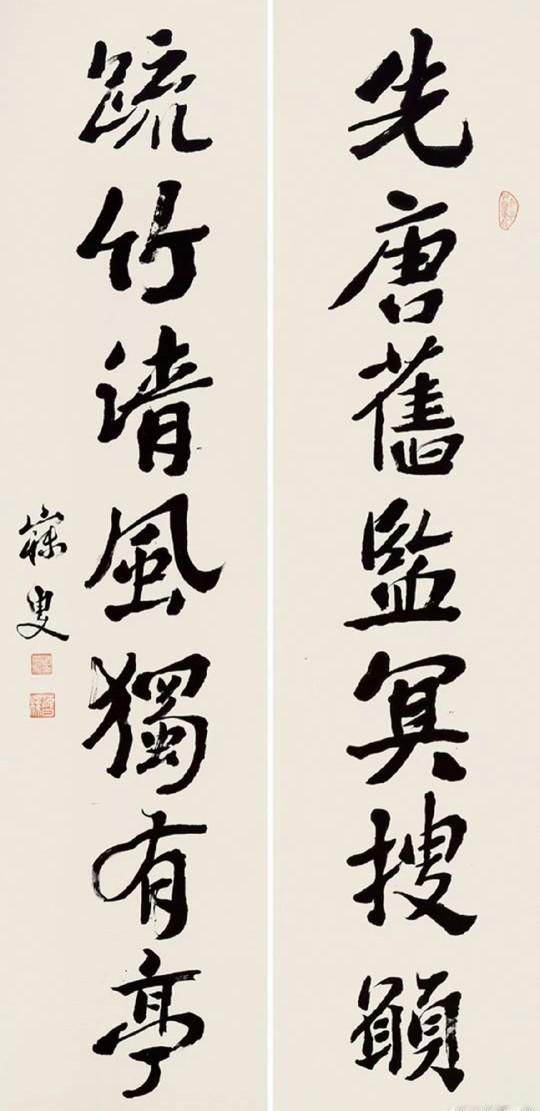 先唐舊監冥搜顧
疏竹清風獨有亭
寐叟